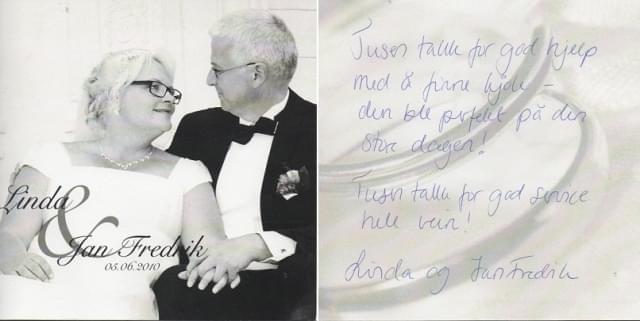 Linda
&
Jan Fredrik
05.06.2010
Tusen takk for god hjelp
med å finne kjole –
den ble perfekt på den
store dagen!
Tusen takk for god service
hele veien!
Linda og Jan Fredrik